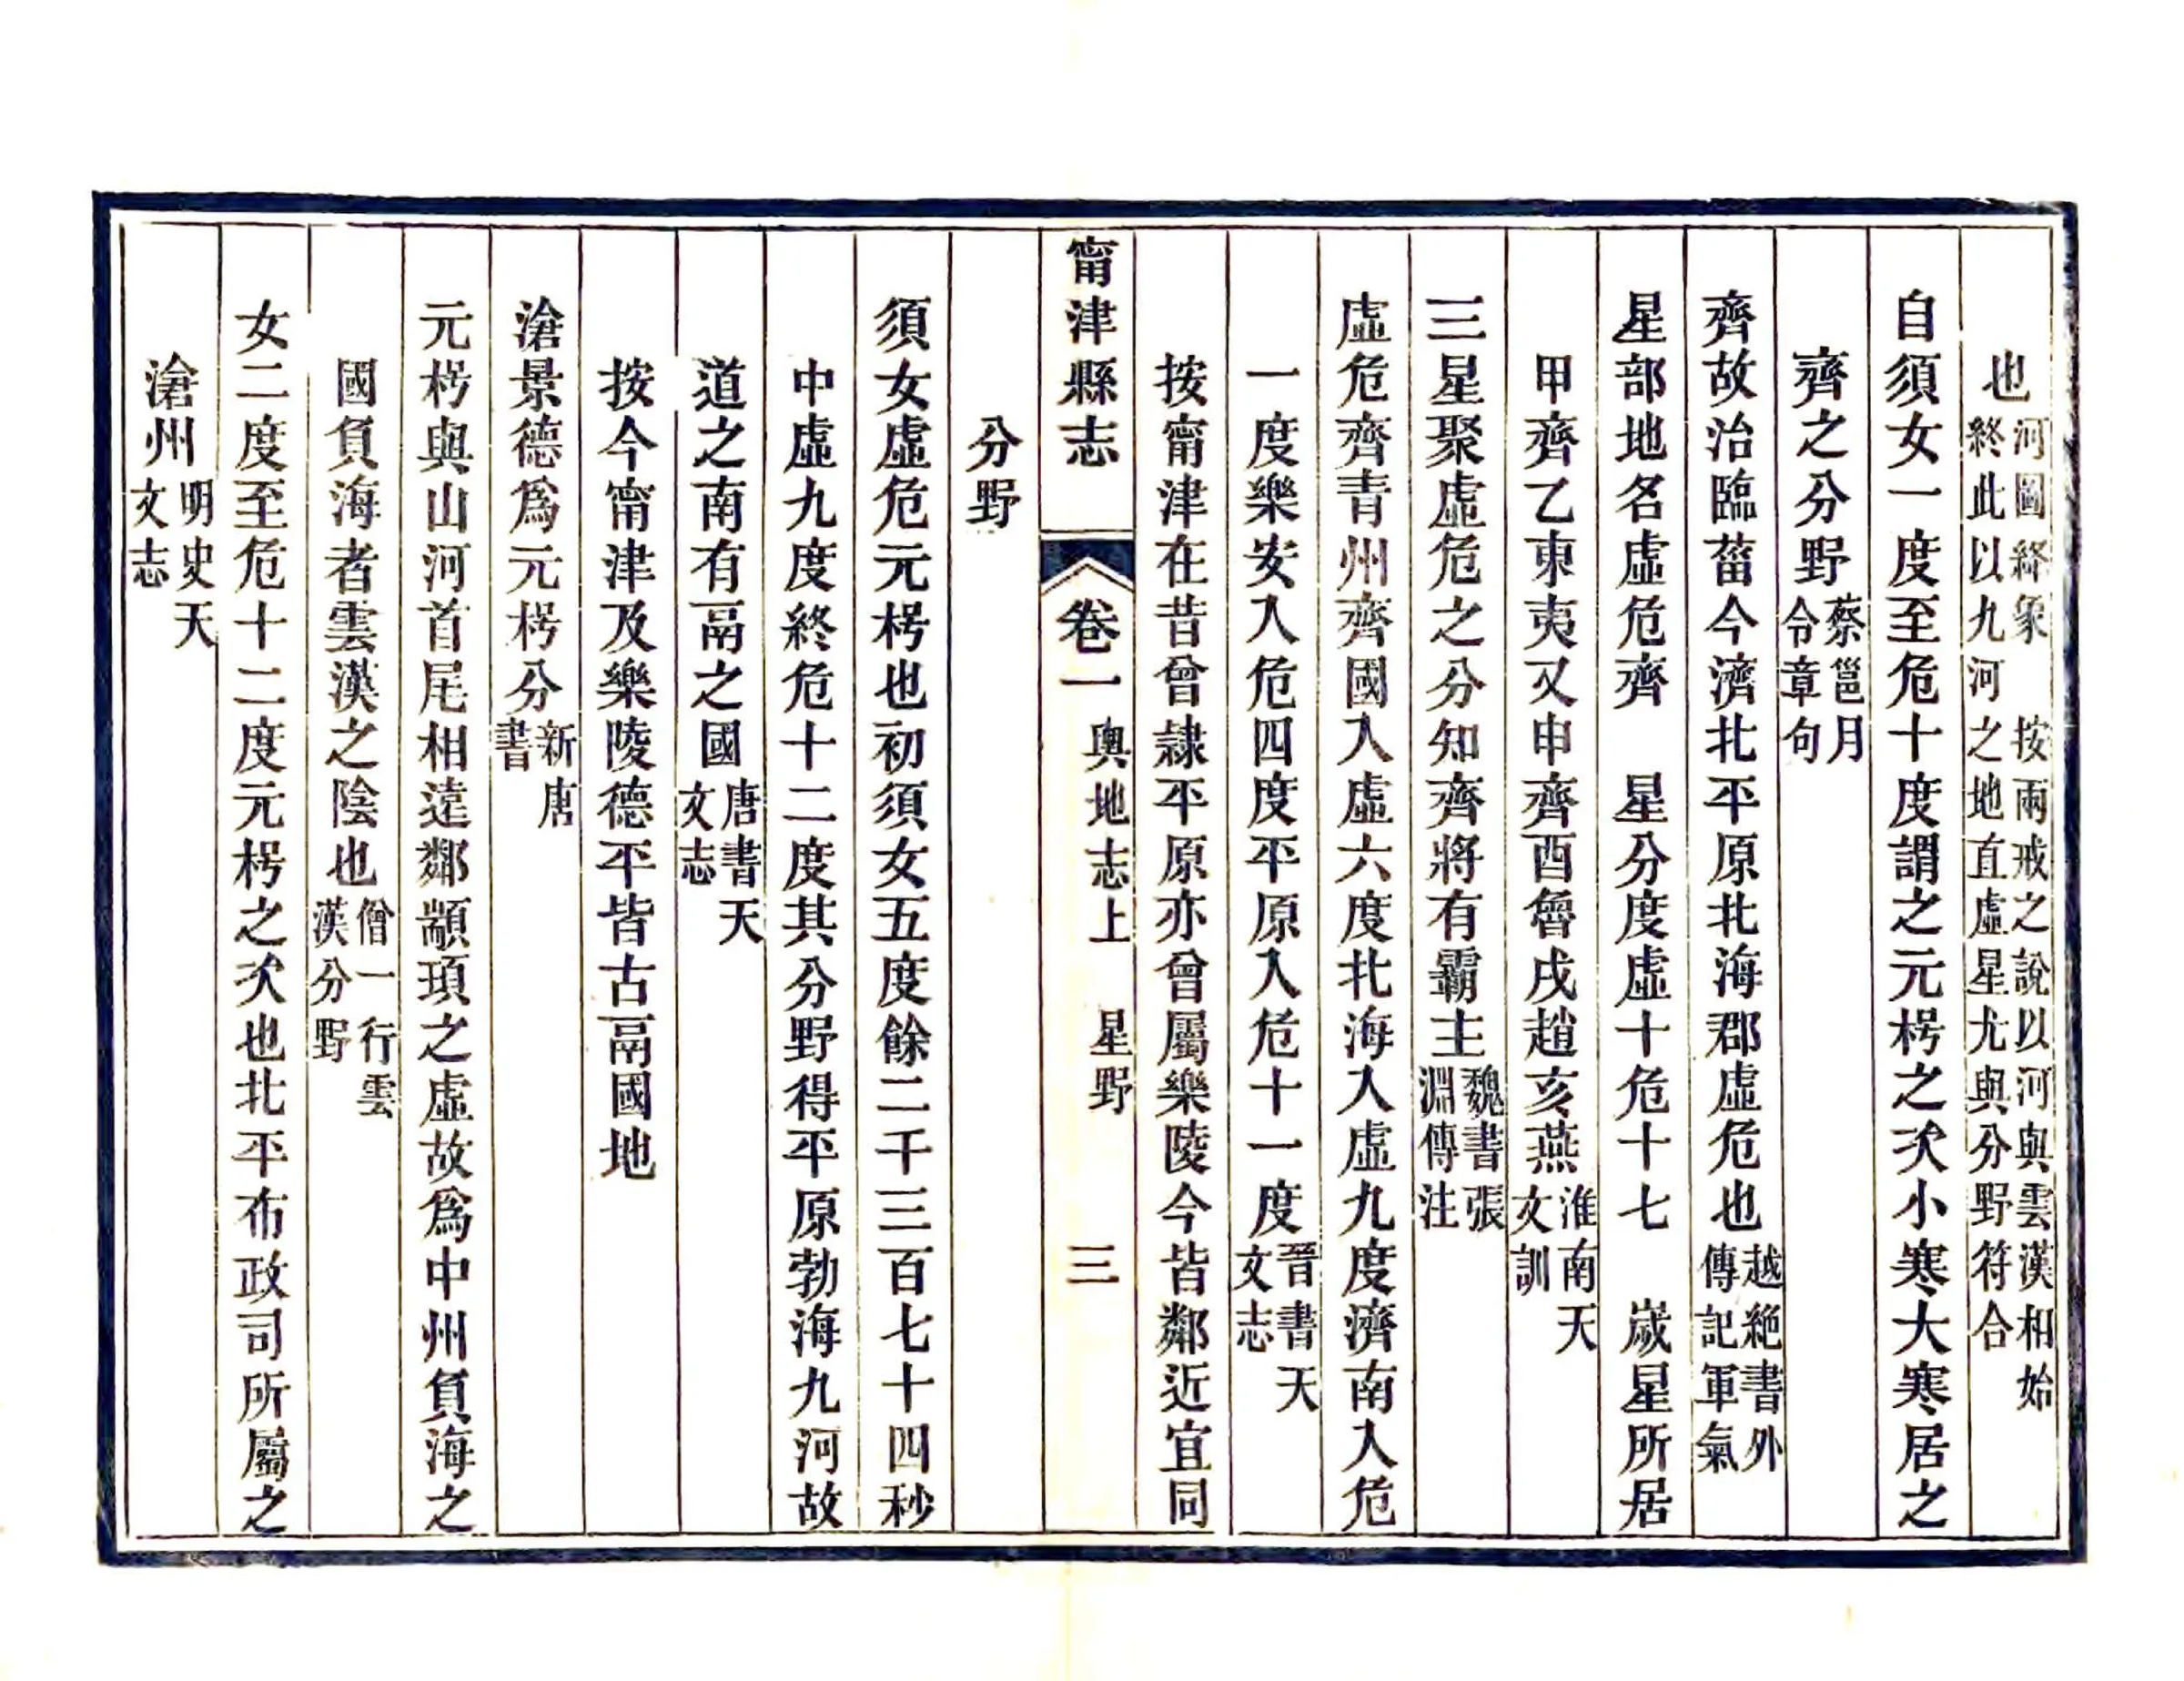 也河圖絳象　按兩戒之說以河與雲漢相始終此以九河之地直虛星尤與分野符合
自須女一度至危十度謂之元枵之次小寒大寒居之
齊之分野蔡邕月令章句
齊故治臨菑今濟北平原北海郡虛危也越絕書外傳記軍氣
星部地名虛危齊　星分度虛十危十七　歲星所居
甲齊乙東夷又申齊酉魯戌趙亥燕淮南天文訓
三星聚虛危之分知齊將有霸主魏書張淵傳注
虛危齊青州齊國入虛六度北海入虛九度濟南入危
一度樂安入危四度平原入危十一度晉書天文志
按甯津在昔曾隸平原亦曾屬樂陵今皆鄰近宜同
甯津縣志　卷一　輿地志上　星野　三
分野
須女虛危元枵也初須女五度餘二千三百七十四秒
中虛九度終危十二度其分野得平原勃海九河故
道之南有鬲之國唐書天文志
按今甯津及樂陵德平皆古鬲國地
滄景德為元枵分新唐書
元枵與山河首尾相遠鄰顓頊之虛故為中州負海之
國負海者雲漢之陰也僧一行雲漢分野
女二度至危十二度元枵之次也北平布政司所屬之
滄州明史天文志